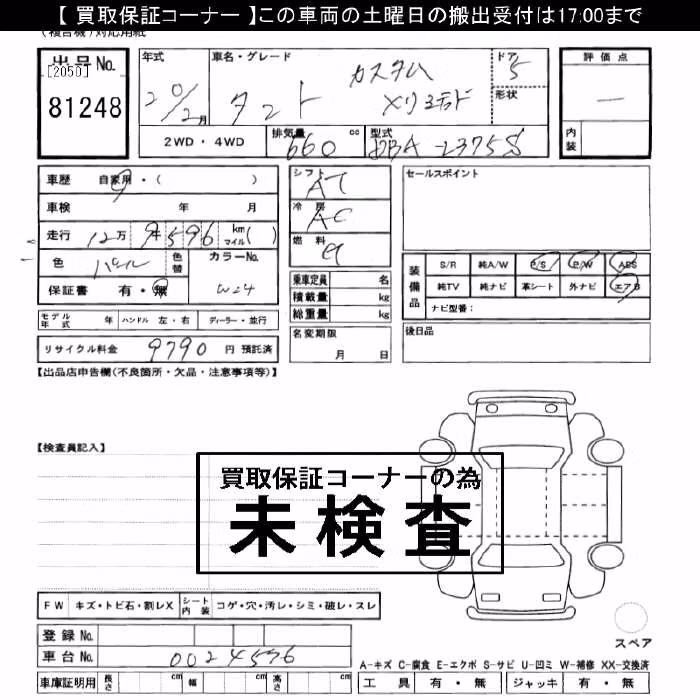 【 買取保証コーナー 】この車両の土曜日の搬出受付は17:00まで
(複合機)対応用紙
出品No.
[2050]
81248
年式
20/2月
車名・グレード
カスタム
タント
ドア
5
形状
評価点
—
内装
2WD・4WD
排気量
660 cc
型式
DBA-L375S
車歴 自家用・( )
車検 年 月
走行 12万 km マイル( )
色
パール
色替
カラーNo.
W24
保証書 有・無
シフト
AT
冷房
AC
燃料
乗車定員 名
積載量 kg
総重量 kg
セールスポイント
装備品
S/R 純A/W P/S P/W ABS
純TV 純ナビ 革シート 外ナビ エアB
ナビ型番：
モデル年式 年 ハンドル 左・右 ディーラー・並行
名変期限
月 日
後日品
リサイクル料金 9790 円 預託済
【出品店申告欄(不良箇所・欠品・注意事項等)】
【検査員記入】
買取保証コーナーの為
未検査
FW キズ・トビ石・割レX シート内装 コゲ・穴・汚レ・シミ・破レ・スレ
登録No.
車台No. 0024576
車庫証明用 長さ cm 幅 cm 高さ cm
スペア
A-キズ C-腐食 E-エクボ S-サビ U-凹ミ W-補修 XX-交換済
工具 有・無 ジャッキ 有・無